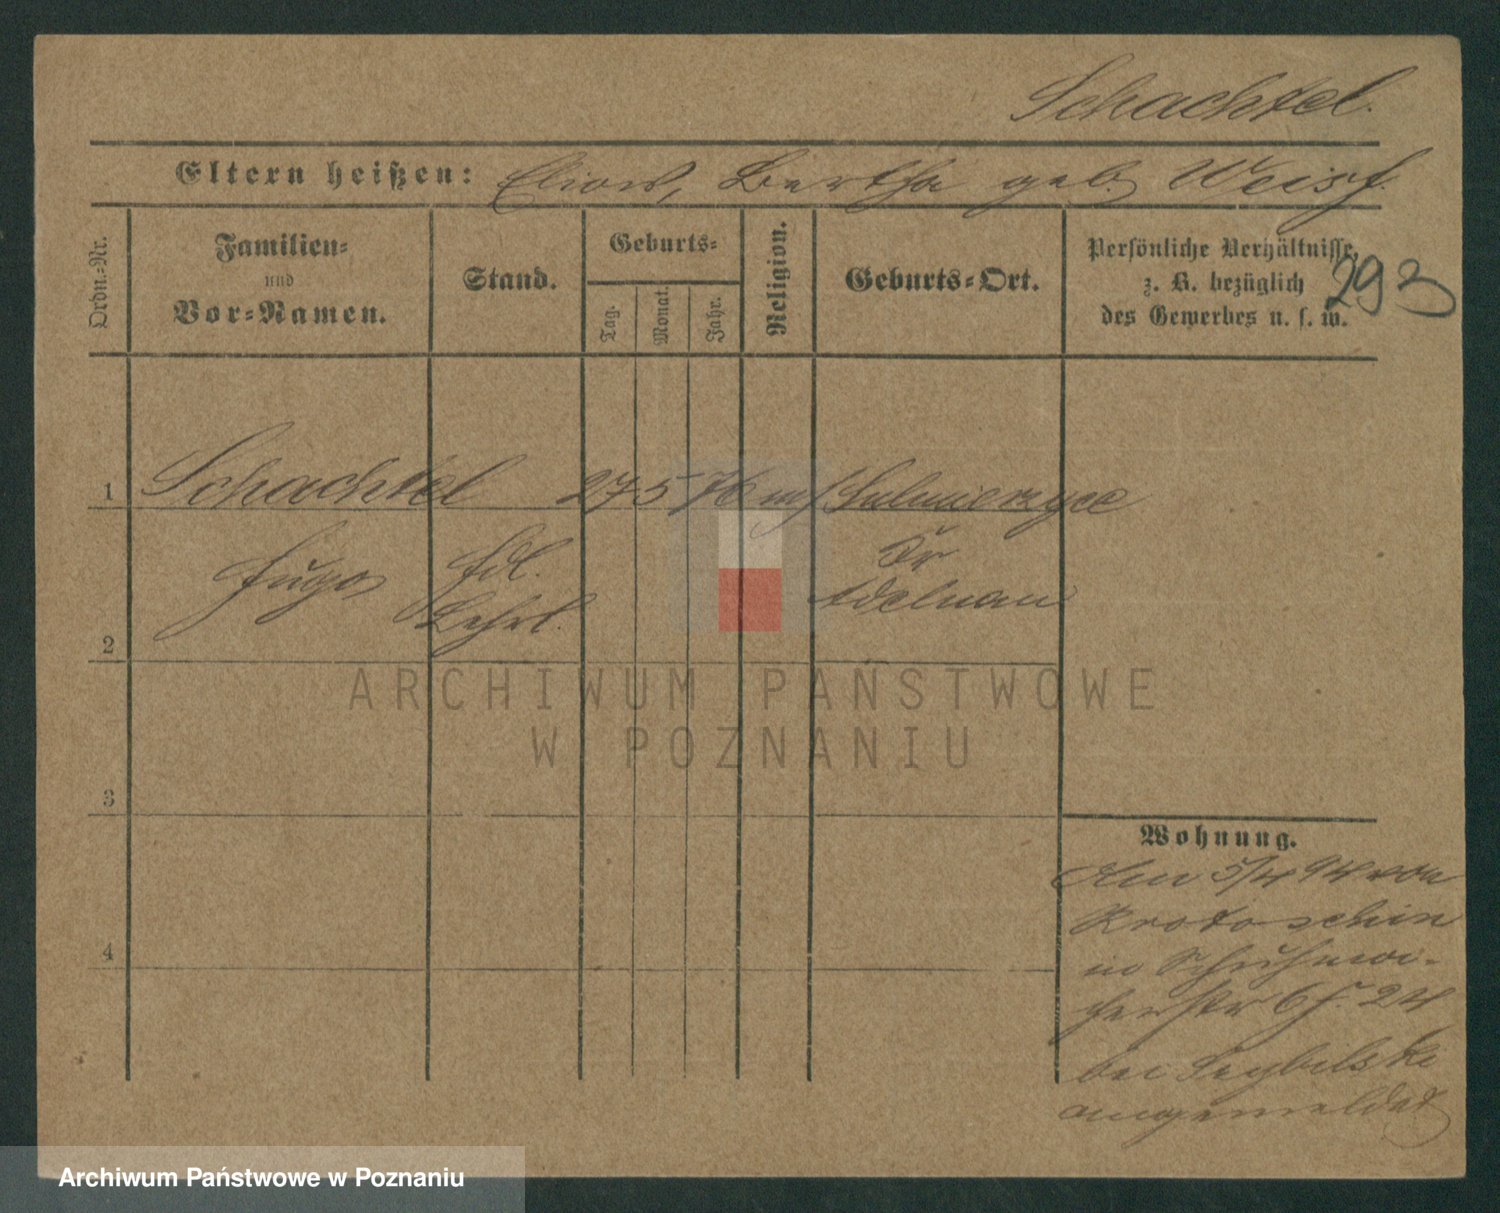 Schachtel.
Eltern heißen: Elias, Bertha geb. Weiss.
Ordn.-Nr.
Familien-
und
Vor-Namen.
Stand.
Geburts-
Tag.
Monat.
Jahr.
Religion.
Geburts-Ort.
Persönliche Verhältnisse,
z. B. bezüglich
des Gewerbes u. s. w.
293
1 Schachtel 27 5 76 Sulmierzyce
Hugo
Lehrl.
Kr
Adelnau
2
3
4
Wohnung.
Am 5/4 94 von
Krotoschin
in Schuhma-
cherstr 6 24
bei
angemeldet
ARCHIWUM PAŃSTWOWE
W POZNANIU
Archiwum Państwowe w Poznaniu